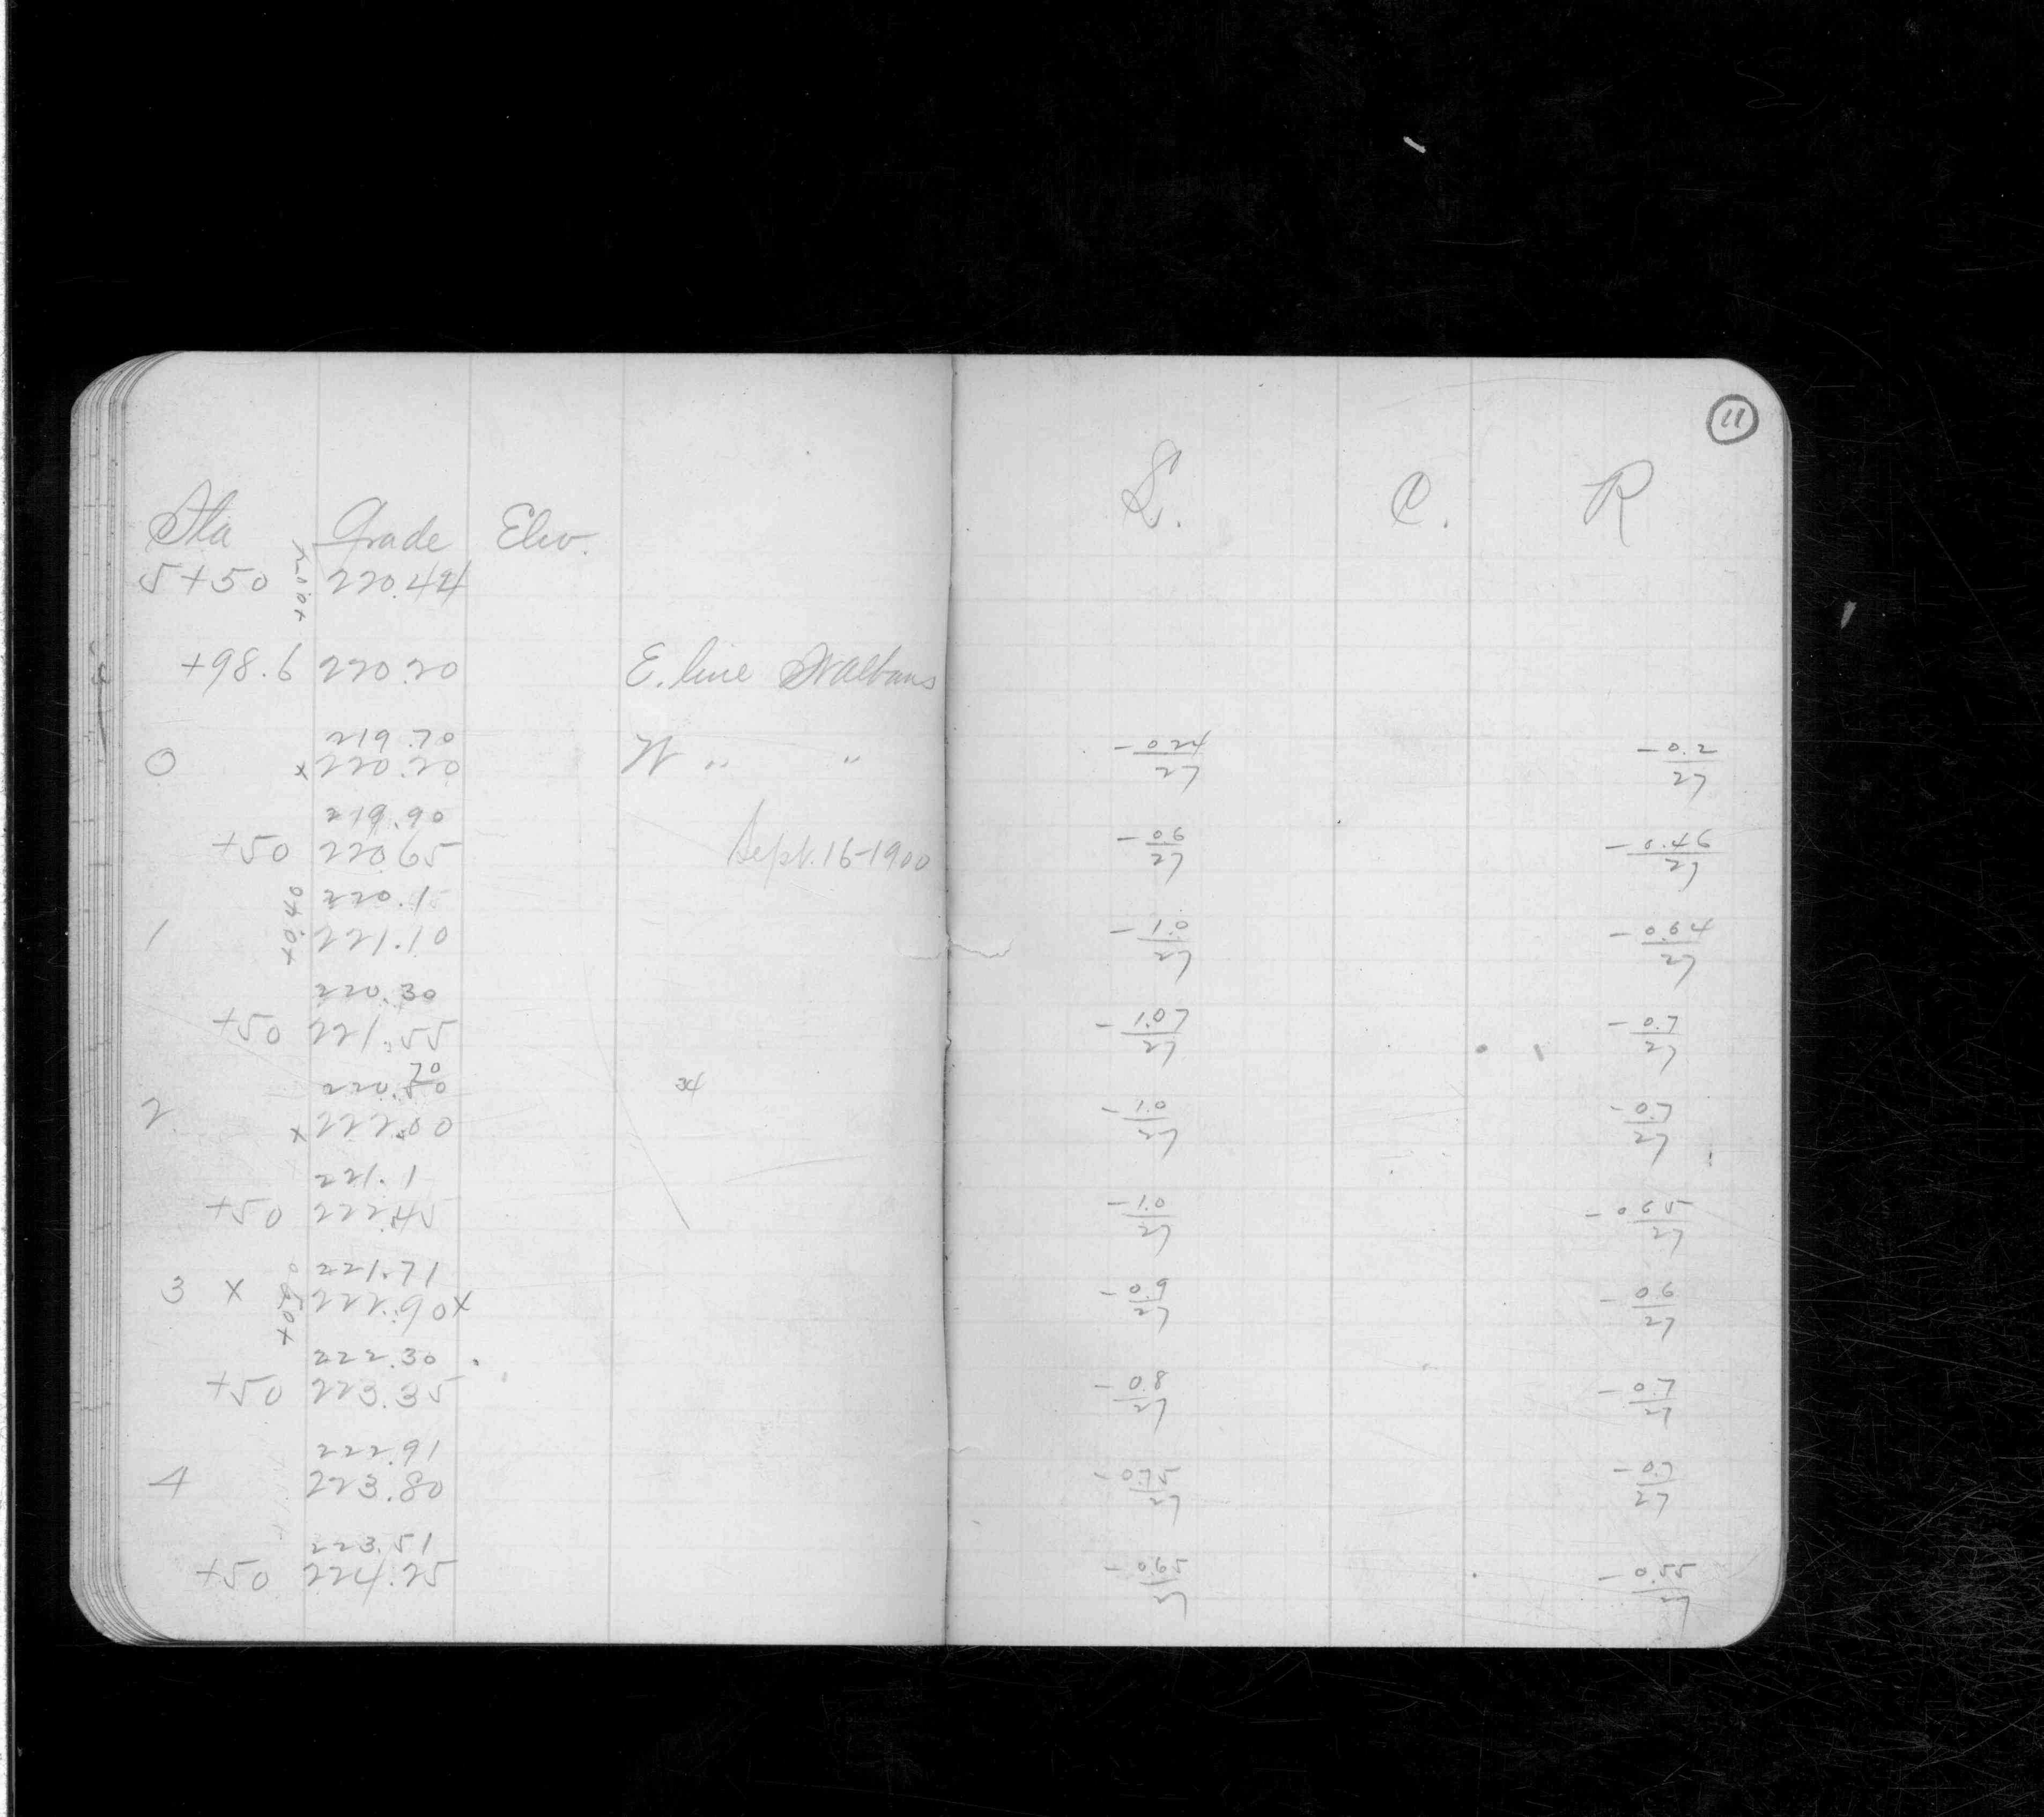 11
Sta Grade Elev. L. C. R
5+50 220.44
+98.6 220.20 E. line St Albans
219.70
0 x 220.20 W " " -0.24/27 -0.2/27
219.90
+50 220.65 Sept. 16-1900 -0.6/27 -0.46/27
220.1
1 +0.40 221.10 -1.0/27 -0.64/27
220.30
+50 221.55 -1.07/27 -0.7/27
70
220.50 34
2 x 222.00 -1.0/27 -0.7/27
221.1
+50 222.45 -1.0/27 -0.65/27
221.71
3 x 222.90x -0.9/27 -0.6/27
222.30
+50 223.35 -0.8/27 -0.7/27
222.91
4 223.80 -0.75/27 -0.7/27
223.51
+50 224.25 -0.65/27 -0.55/27